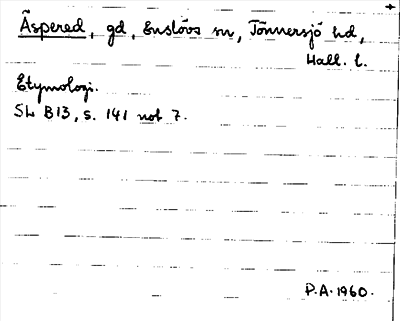 Äspered, gd, Enslövs sn, Tönnersjö hd,
Hall. l.
Etymologi.
SL B13, s. 141 not 7.
P.A. 1960.